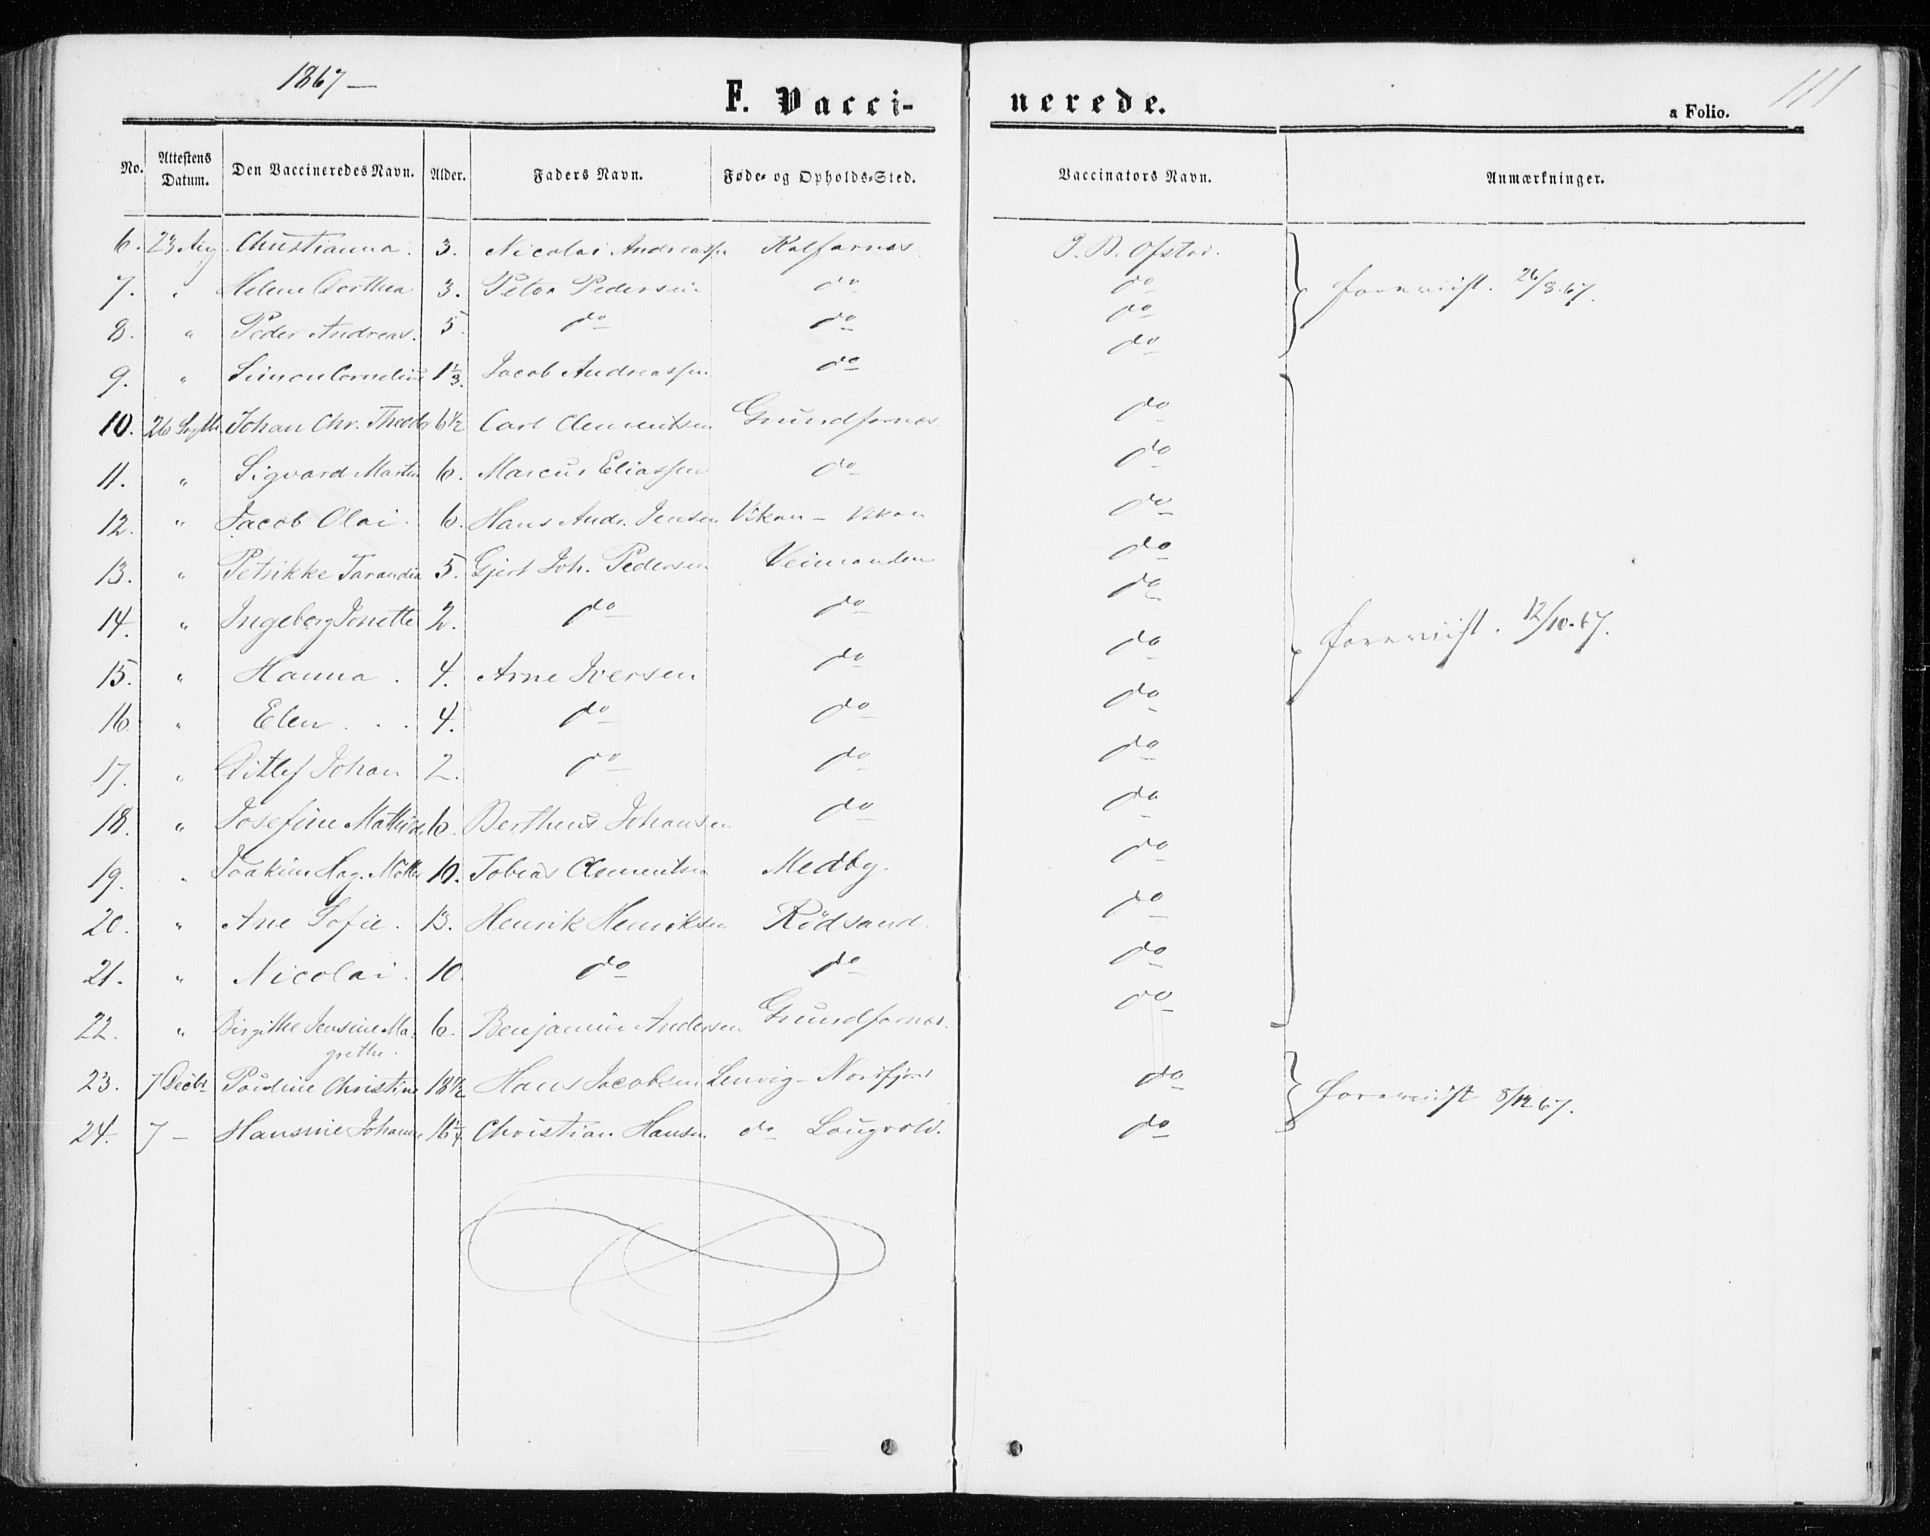 1867 —
111
F. Vacci- nerede.
a Folio.
No. Attestens Datum. Den Vaccineredes Navn. Alder. Faders Navn. Føde- og Opholds-Sted. Vaccinators Navn. Anmærkninger.
6. 23 Aug Christianna. 3. Nicolai Andreassen Kalfarnæs. Ofstad.
7. " Helene Dorthea 3. Peter Pedersen do do foreviist. 26/8.67.
8. " Peder Andreas. 5. do do do
9. " Simon Cornelius 1 1/3. Jacob Andreassen do do
10. 26 Septb. Johan Chr. Theodor 6 1/2 Carl Clementsen Grundfarnæs do
11. " Sigvard Martin 6. Marcus Eliassen do do
12. " Jacob Olai. 6. Hans Andr. Jensen Vikan - Vikan do
13. " Petrikke Tarandia 5. Gjert Joh. Pedersen Veimanden do
14. " Ingeberg Jonette 2. do do do foreviist. 12/10.67.
15. " Hanna. 4. Arne Iversen do do
16. " Elen . . 4. do do do
17. " Ditlef Johan 2. do do do
18. " Josefine Mathilde 6. Bertheus Johansen do do
19. " Joakim Hag. 10. Tobias Clementsen Medby. do
20. " Ane Sofie. 13. Henrik Henriksen Rödsand. do
21. " Nicolai. 10 do do do
22. " Birgithe Jensine Ma-
grethe. 6. Benjamin Andersen Grundfarnæs. do
23. 7 Decbr Pauline Christine 18 1/2 Hans Jacobsen Lenvig - Nordfjord do forevist 8/12 67.
24. 7 - Hansine Johanne 16 1/4 Christian Hansen do Laugvold. do